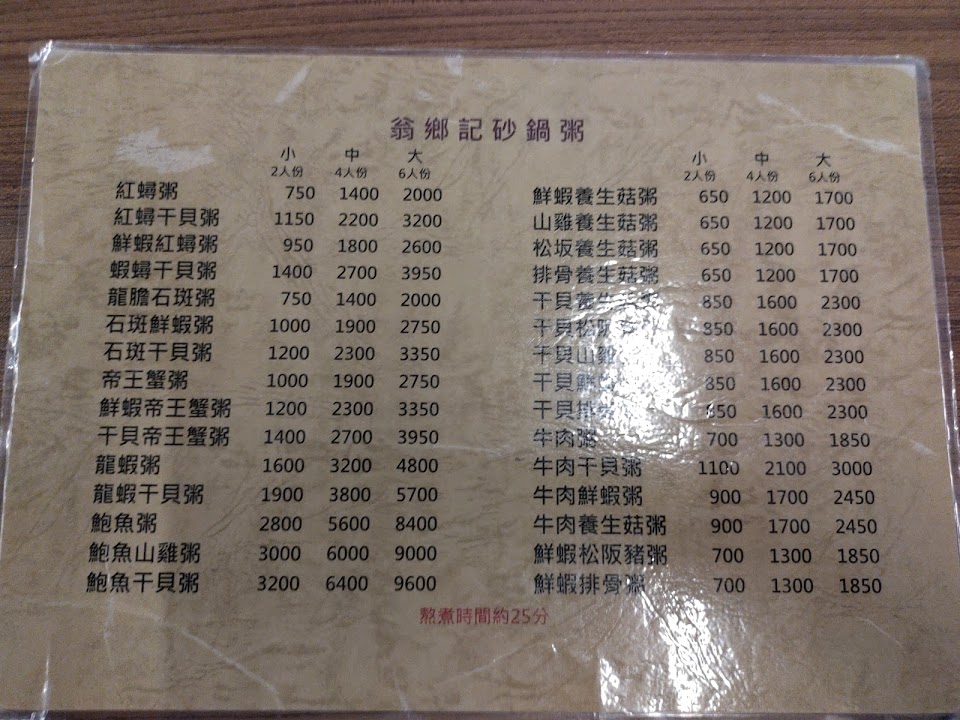 翁鄉記砂鍋粥
小 中 大
2人份 4人份 6人份
紅蟳粥 750 1400 2000
紅蟳干貝粥 1150 2200 3200
鮮蝦紅蟳粥 950 1800 2600
蝦蟳干貝粥 1400 2700 3950
龍膽石斑粥 750 1400 2000
石斑鮮蝦粥 1000 1900 2750
石斑干貝粥 1200 2300 3350
帝王蟹粥 1000 1900 2750
鮮蝦帝王蟹粥 1200 2300 3350
干貝帝王蟹粥 1400 2700 3950
龍蝦粥 1600 3200 4800
龍蝦干貝粥 1900 3800 5700
鮑魚粥 2800 5600 8400
鮑魚山雞粥 3000 6000 9000
鮑魚干貝粥 3200 6400 9600
小 中 大
2人份 4人份 6人份
鮮蝦養生菇粥 650 1200 1700
山雞養生菇粥 650 1200 1700
松坂養生菇粥 650 1200 1700
排骨養生菇粥 650 1200 1700
干貝養生 850 1600 2300
干貝松阪 850 1600 2300
干貝山雞 850 1600 2300
干貝鮮 850 1600 2300
干貝排 850 1600 2300
牛肉粥 700 1300 1850
牛肉干貝粥 1100 2100 3000
牛肉鮮蝦粥 900 1700 2450
牛肉養生菇粥 900 1700 2450
鮮蝦松阪豬粥 700 1300 1850
鮮蝦排骨粥 700 1300 1850
熬煮時間約25分